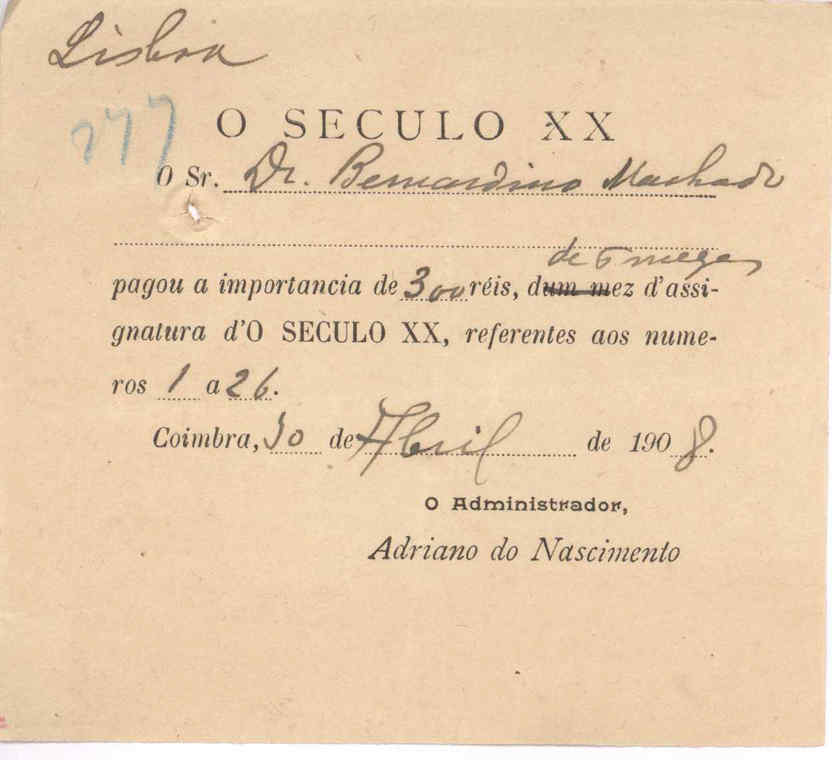 Lisboa
277
O SECULO XX
O Sr. Dr. Bernardino Machado
de 6 mezes
pagou a importancia de 300 réis, dum mez d'assi-
gnatura d'O SECULO XX, referentes aos nume-
ros 1 a 26.
Coimbra, 30 de Abril de 1908.
O Administrador,
Adriano do Nascimento